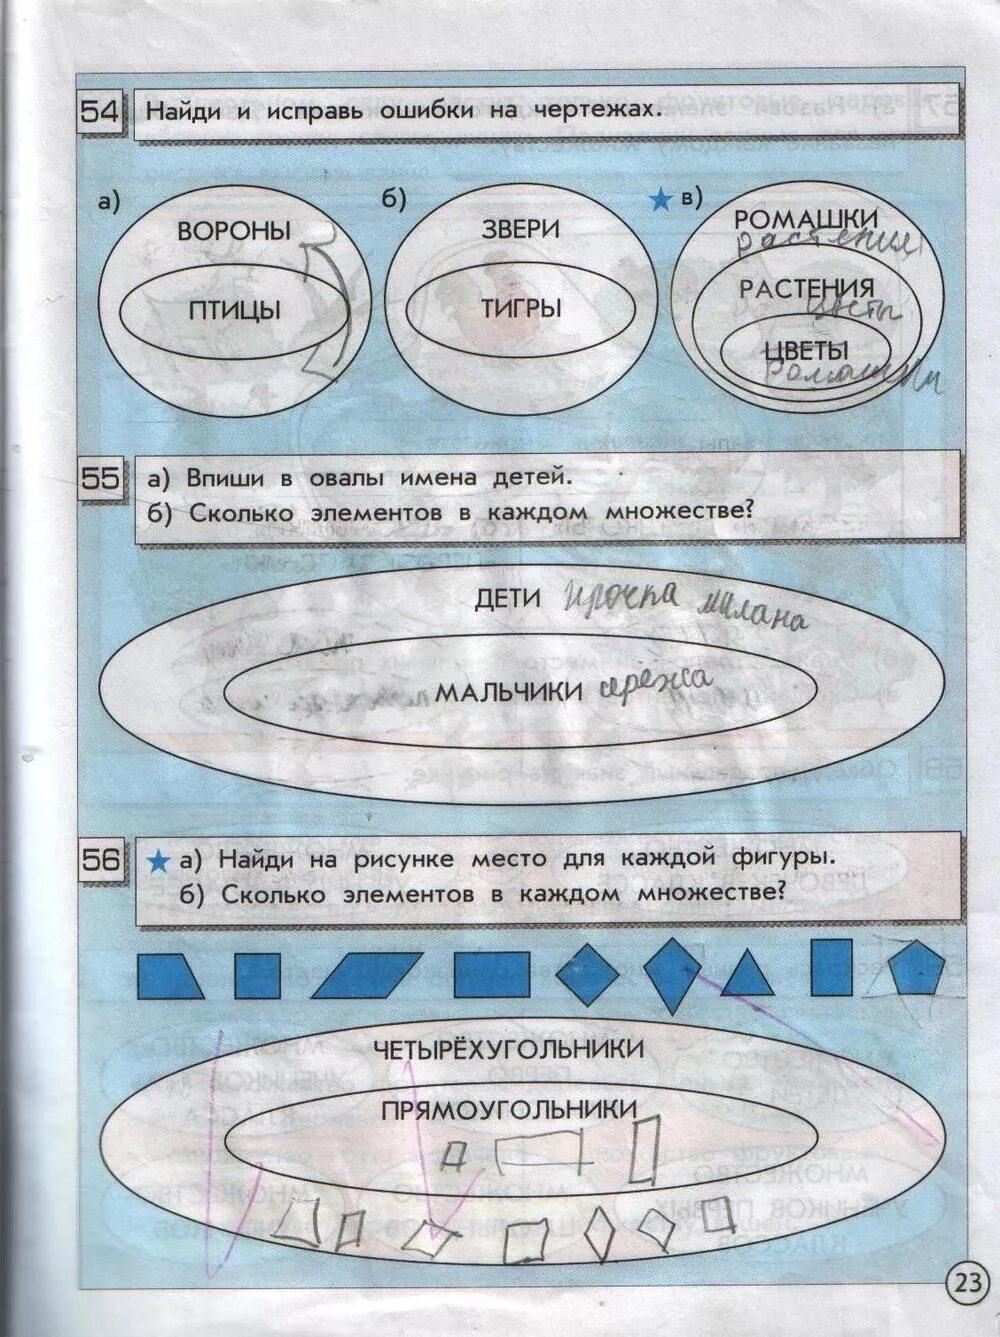 54 Найди и исправь ошибки на чертежах.
а) б) в)
ВОРОНЫ
ПТИЦЫ
ЗВЕРИ
ТИГРЫ
РОМАШКИ
растения
РАСТЕНИЯ
Цветы
ЦВЕТЫ
Ромашки
55 а) Впиши в овалы имена детей.
б) Сколько элементов в каждом множестве?
ДЕТИ Ирочка милана
МАЛЬЧИКИ сережа
56 а) Найди на рисунке место для каждой фигуры.
б) Сколько элементов в каждом множестве?
ЧЕТЫРЁХУГОЛЬНИКИ
ПРЯМОУГОЛЬНИКИ
23